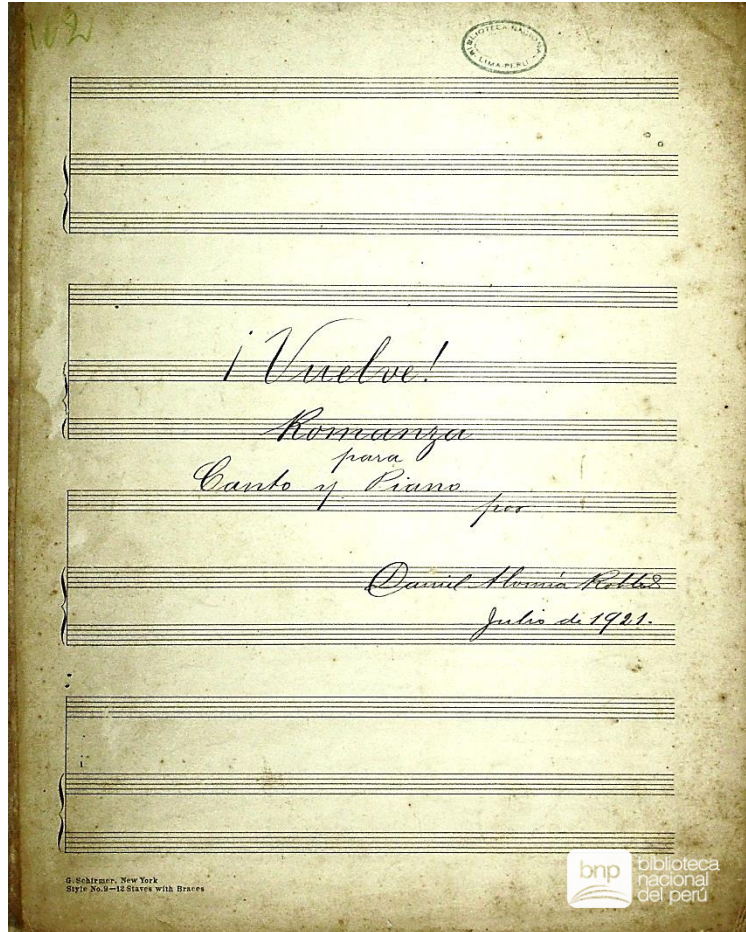 162
BIBLIOTECA NACIONAL
LIMA-PERU
¡Vuelve!
Romanza
para
Canto y Piano
por
Daniel Alomía Robles
Julio de 1921.
G. Schirmer, New York
Style No. 9—12 Staves with Braces
bnp biblioteca
nacional
del perú